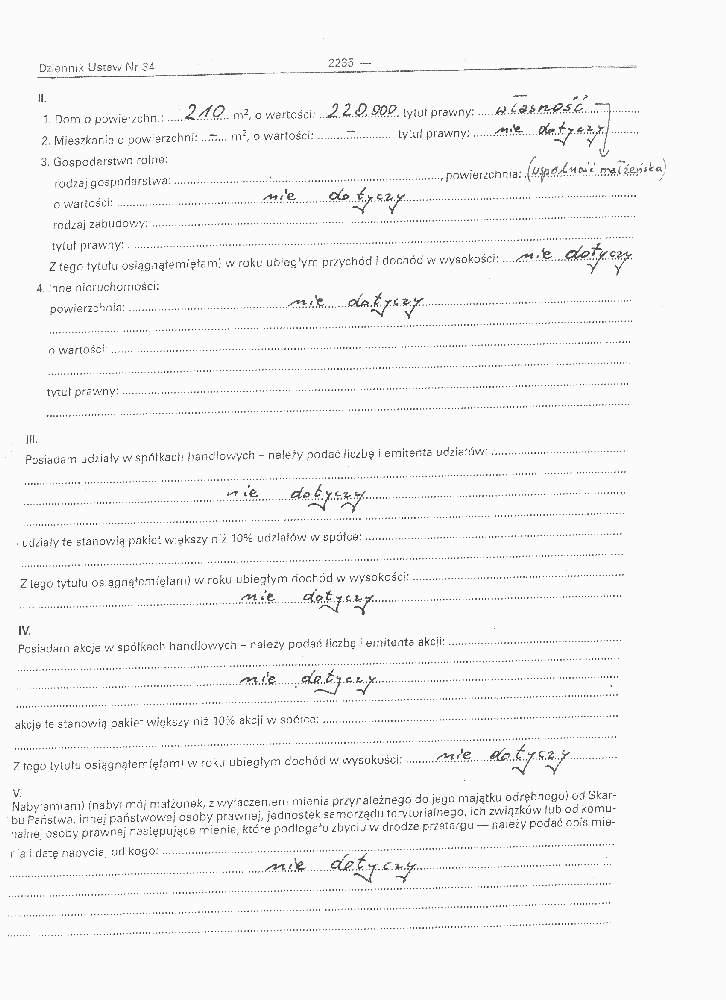 Dziennik Ustaw Nr 34 2265 —
II.
1. Dom o powierzchni: 210 m², o wartości: 220.000 tytuł prawny: własność
2. Mieszkanie o powierzchni: – m², o wartości: – tytuł prawny: nie dotyczy
3. Gospodarstwo rolne:
rodzaj gospodarstwa: , powierzchnia: (wspólność małżeńska)
o wartości: nie dotyczy
rodzaj zabudowy:
tytuł prawny:
Z tego tytułu osiągnąłem(ęłam) w roku ubiegłym przychód i dochód w wysokości: nie dotyczy
4. Inne nieruchomości:
powierzchnia: nie dotyczy
o wartości:
tytuł prawny:
III.
Posiadam udziały w spółkach handlowych – należy podać liczbę i emitenta udziałów:
nie dotyczy
udziały te stanowią pakiet większy niż 10% udziałów w spółce:
Z tego tytułu osiągnąłem(ęłam) w roku ubiegłym dochód w wysokości:
nie dotyczy
IV.
Posiadam akcje w spółkach handlowych – należy podać liczbę i emitenta akcji:
nie dotyczy
akcje te stanowią pakiet większy niż 10% akcji w spółce:
Z tego tytułu osiągnąłem(ęłam) w roku ubiegłym dochód w wysokości: nie dotyczy
V.
Nabyłem(am) (nabył mój małżonek, z wyłączeniem mienia przynależnego do jego majątku odrębnego) od Skar-
bu Państwa, innej państwowej osoby prawnej, jednostek samorządu terytorialnego, ich związków lub od komu-
nalnej osoby prawnej następujące mienie, które podlegało zbyciu w drodze przetargu — należy podać opis mie-
nia i datę nabycia, od kogo:
nie dotyczy